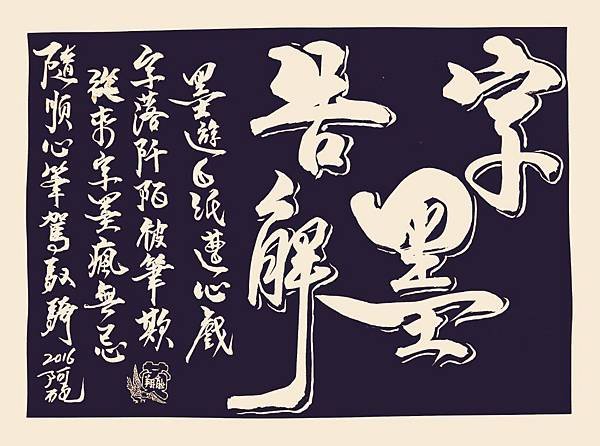 字墨
苦解
墨遊白紙遭心戲
字落阡陌被筆欺
從來字墨瘋無忌
隨順心筆駕馭騎
2016